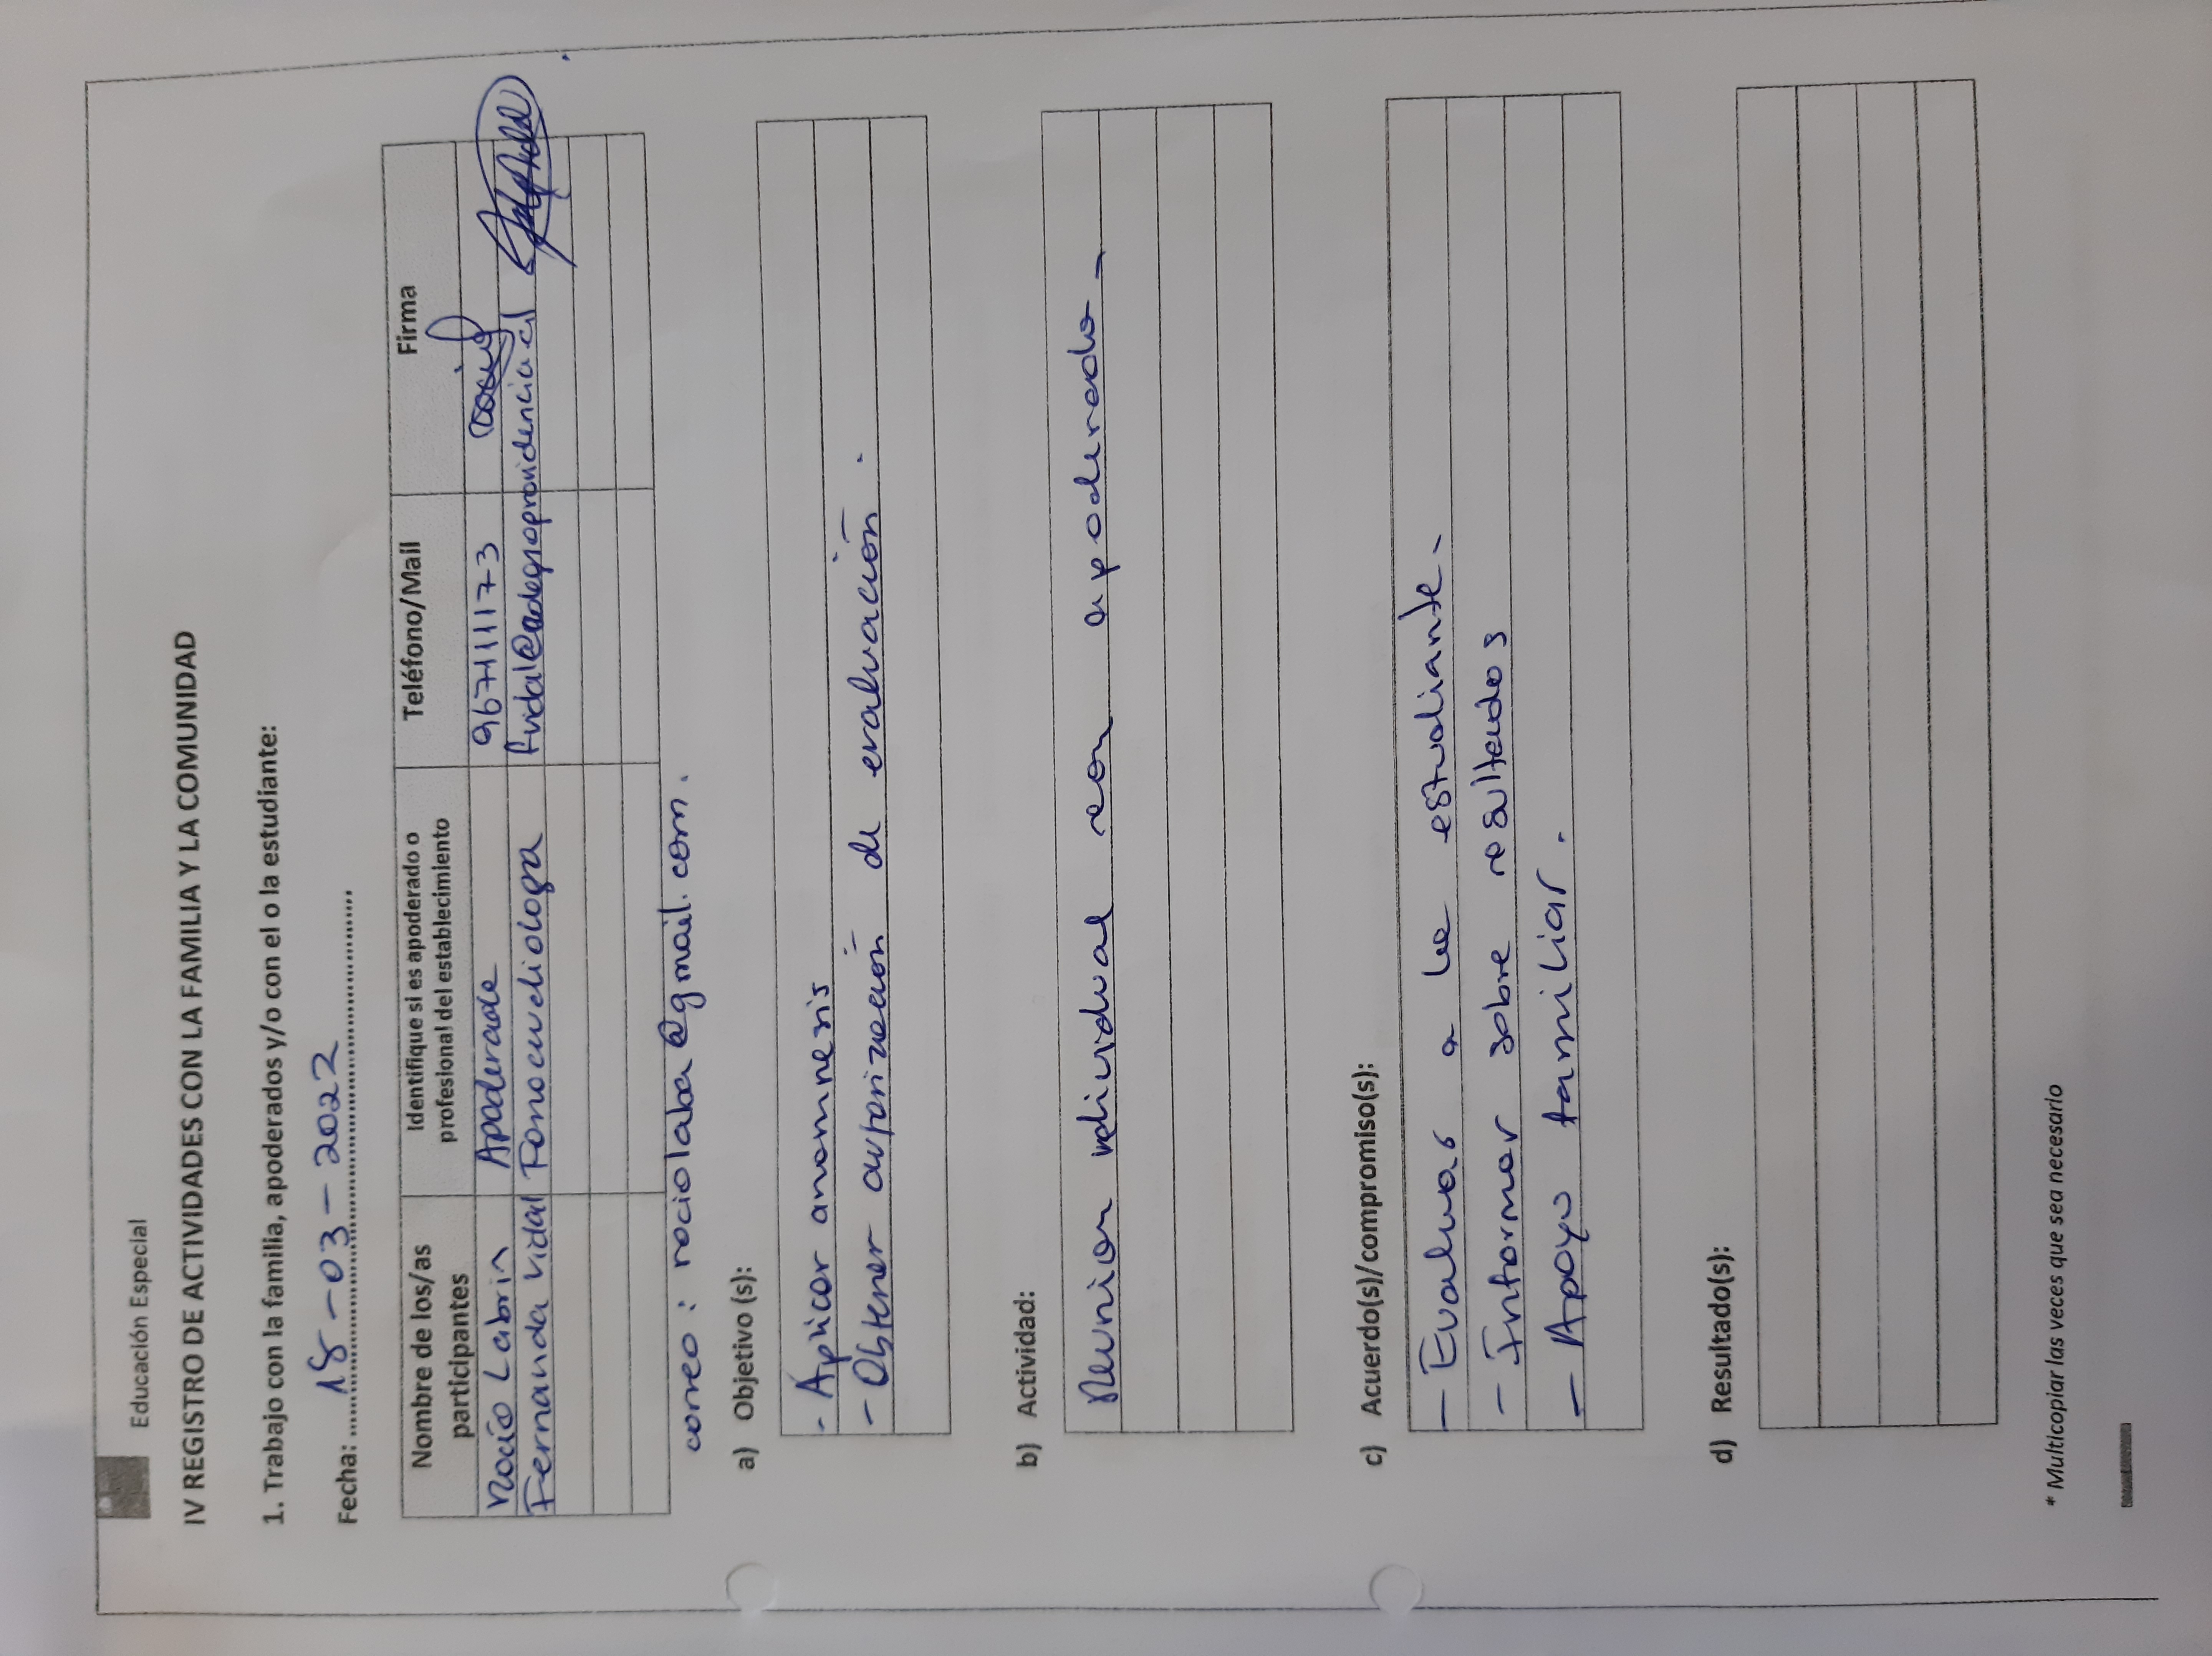 Educación Especial
IV REGISTRO DE ACTIVIDADES CON LA FAMILIA Y LA COMUNIDAD
1. Trabajo con la familia, apoderados y/o con el o la estudiante:
Fecha: 18-03-2022
Nombre de los/as participantes | Identifique si es apoderado o profesional del establecimiento | Teléfono/Mail | Firma
Rocío Labrin | Apoderade | 967111173
Fernanda Vidal | Fonoaudiologa
correo: rociolaba@gmail.com.
a) Objetivo (s):
- Aplicar anamnesis
- Obtener autorización de evaluación.
b) Actividad:
Reunion individual con apoderado-
c) Acuerdo(s)/compromiso(s):
- Evaluar a la estudiante-
- Informar sobre resultados
- Apoyo familiar.
d) Resultado(s):
* Multicopiar las veces que sea necesario